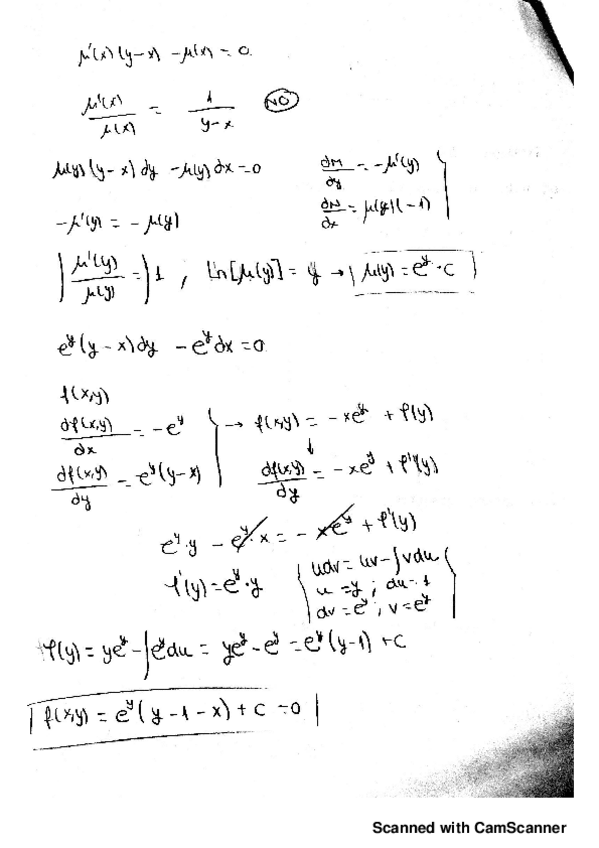 μ'(x)(y-x) - μ(x) = 0
μ'(x)/μ(x) = 1/(y-x) NO
μ(y)(y-x)dy - μ(y)dx = 0
dM/dy = -μ'(y)
dN/dx = μ(y)(-1)
-μ'(y) = -μ(y)
∫ μ'(y)/μ(y) = ∫ 1 , Ln[μ(y)] = y → μ(y) = e^y · C
e^y(y-x)dy - e^y dx = 0
f(x,y)
df(x,y)/dx = -e^y → f(x,y) = -xe^y + φ(y)
df(x,y)/dy = e^y(y-x) df(x,y)/dy = -xe^y + φ'(y)
e^y·y - e^y·x = -xe^y + φ'(y)
φ'(y) = e^y·y
udv = uv - ∫vdu
u = y ; du = 1
dv = e^y ; v = e^y
φ(y) = ye^y - ∫e^y du = ye^y - e^y = e^y(y-1) + C
f(x,y) = e^y(y-1-x) + C = 0
Scanned with CamScanner